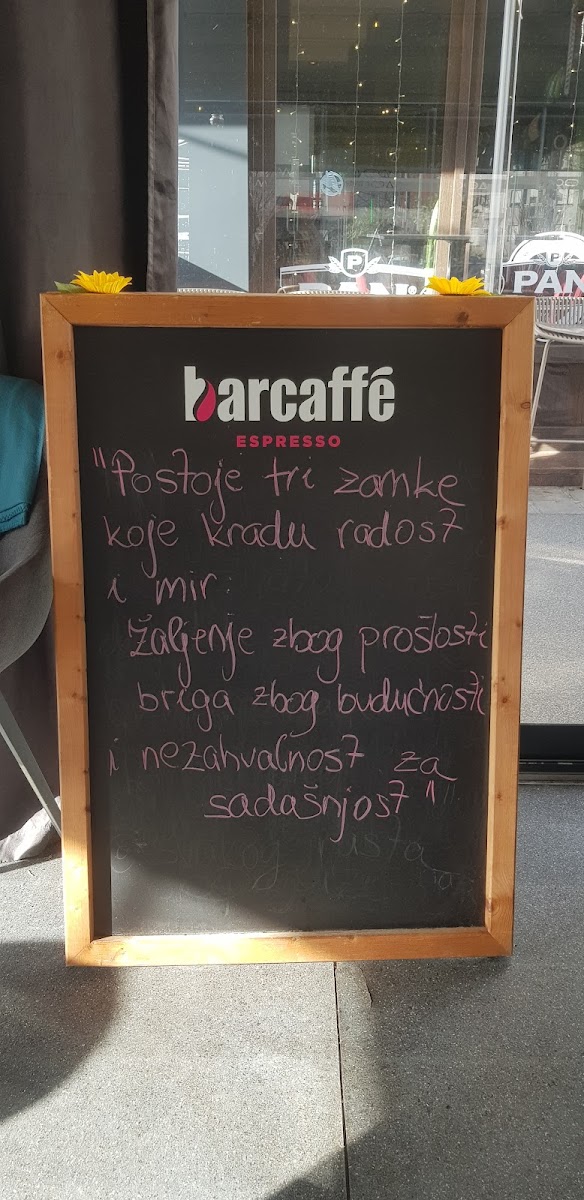 PAN
PAN
barcaffé
ESPRESSO
"Postoje tri zamke
koje kradu radost
i mir:
Žaljenje zbog prošlosti
briga zbog budućnosti
i nezahvalnost za
sadašnjost"